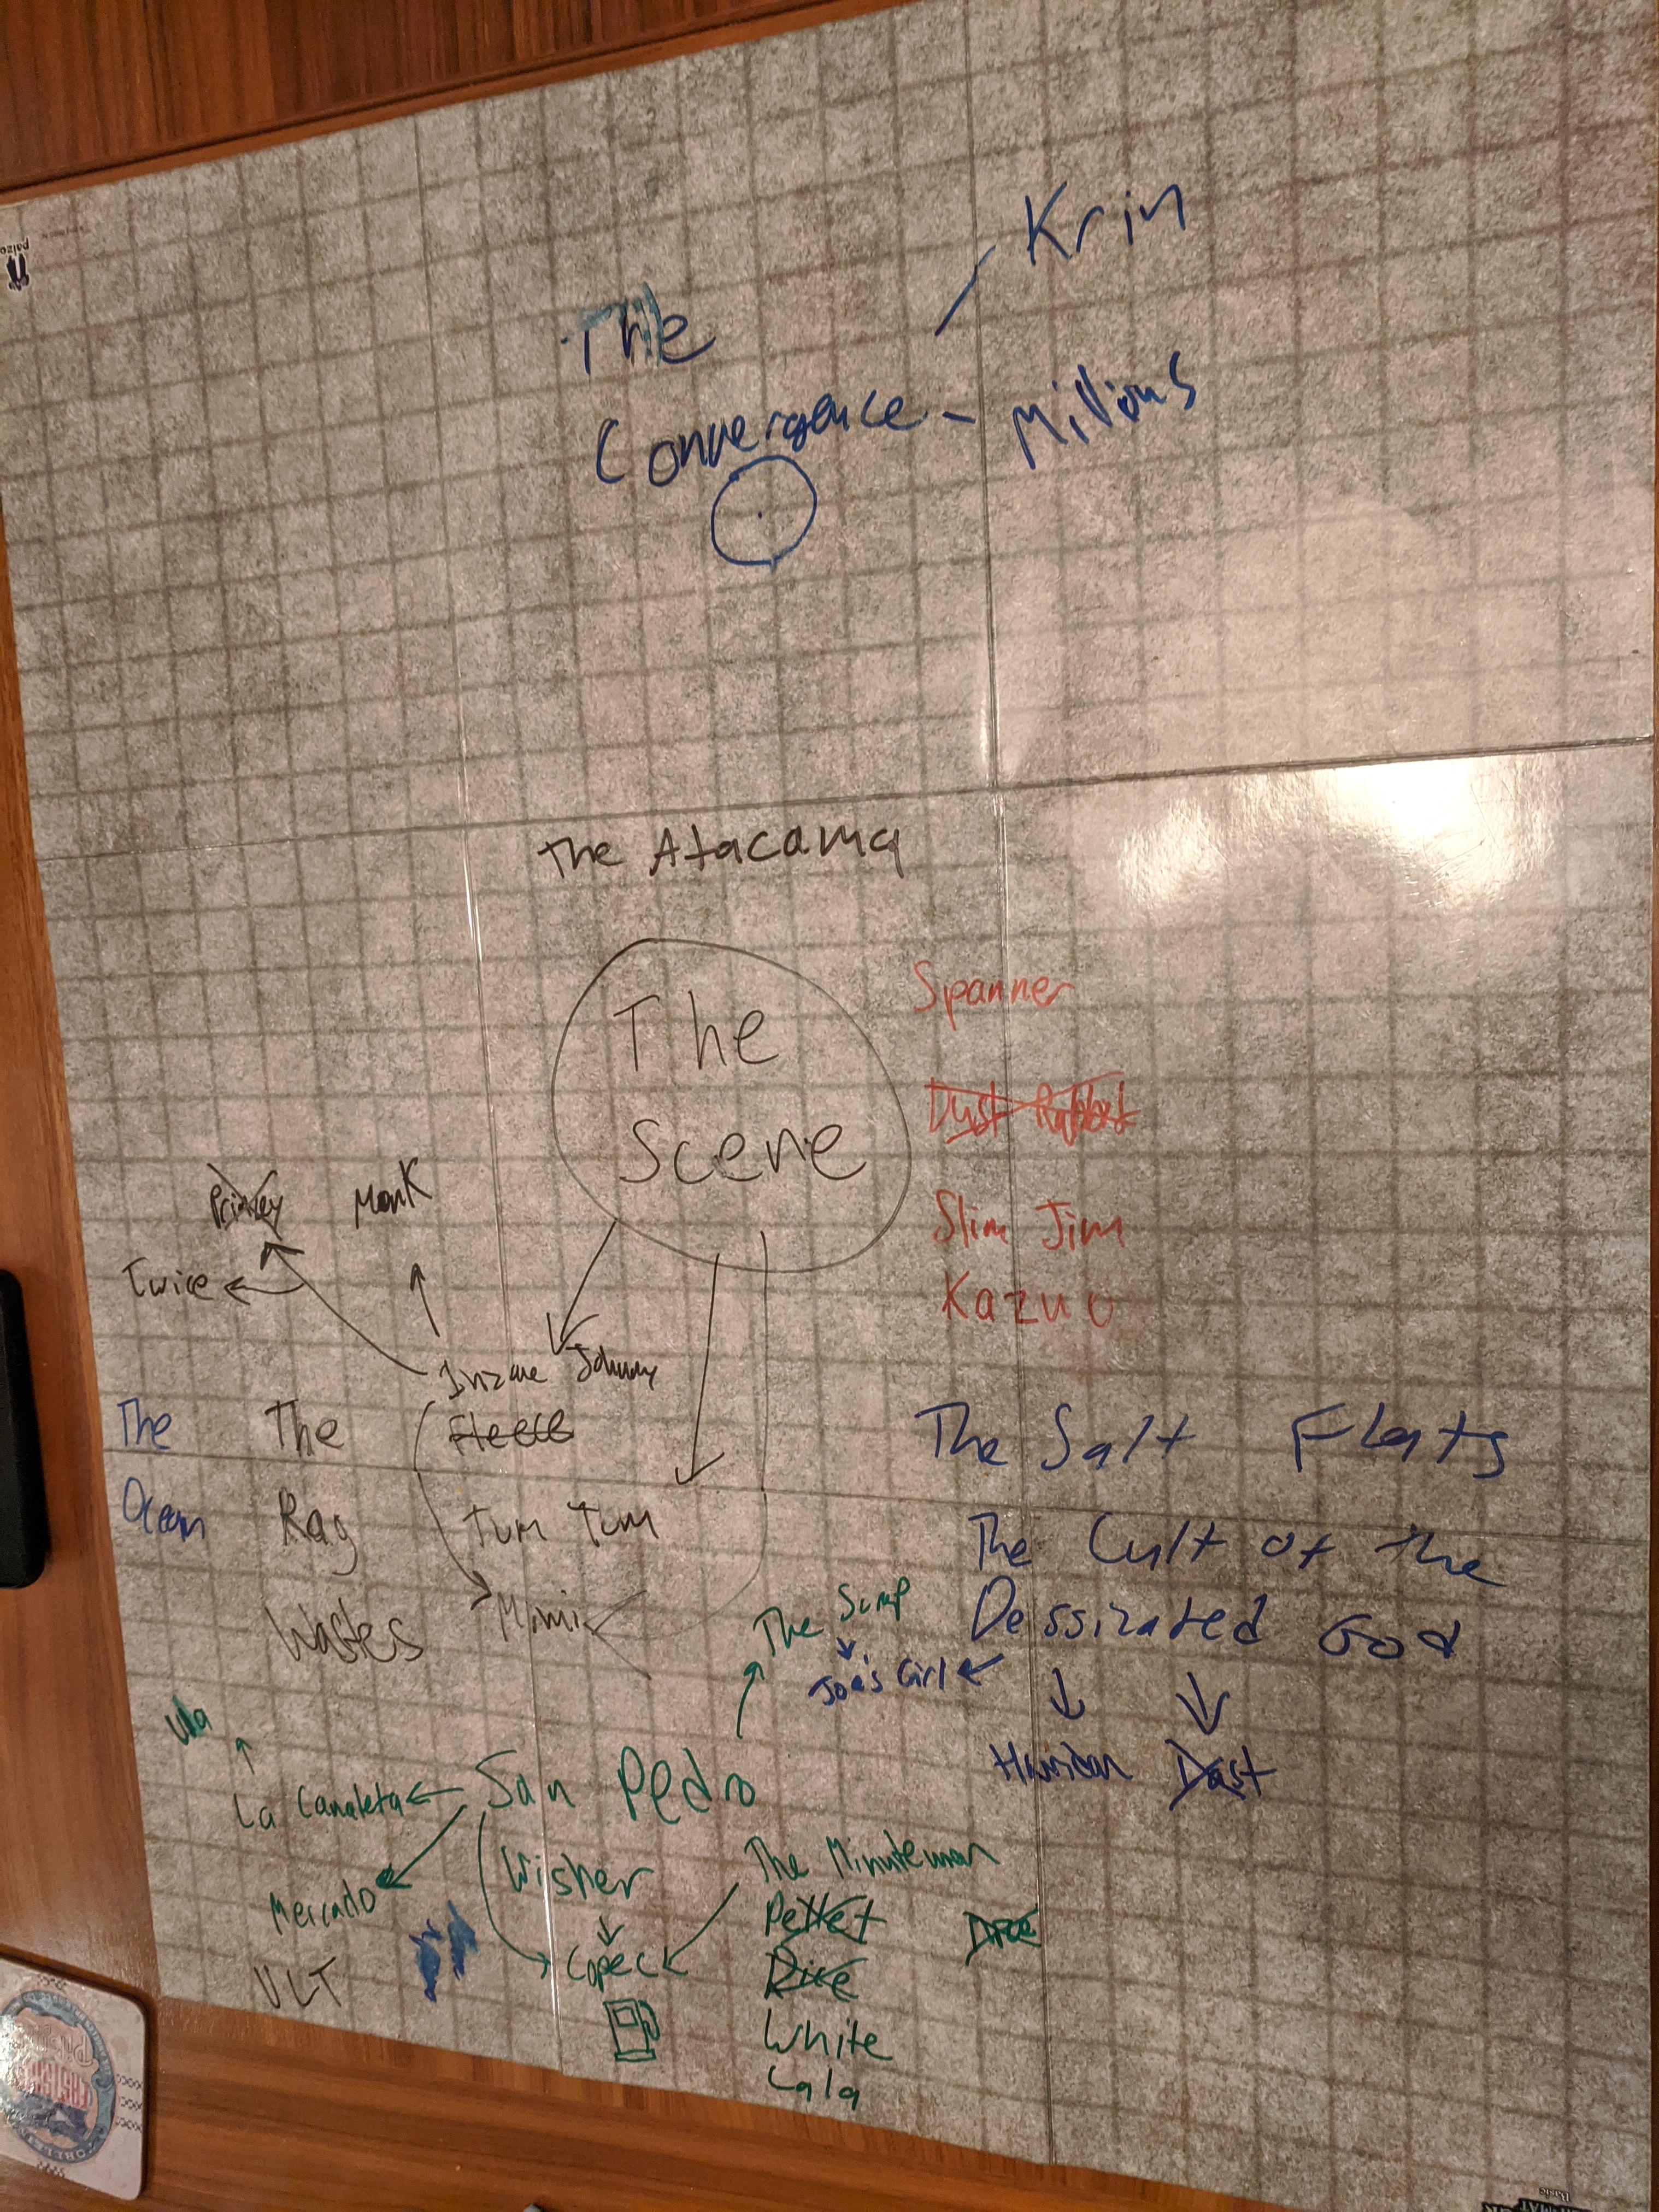 paizo
Krin
The
Convergence - Millions
The Atacama
The
Scene
Spanner
Dust
Slim Jim
Kazuo
Monk
Twice
Johnny
Fleece
Tum Tum
Mimi
The
Ocean
The
Rag
Wastes
The Salt Flats
The Cult of the
Dessizated God
The Sump
Joe's Girl
Dust
Ula
San Pedro
La Canaleta
Mercado
VLT
Wisher
Copec
The Minuteman
Pellet
Dice
White
Lala
Dice